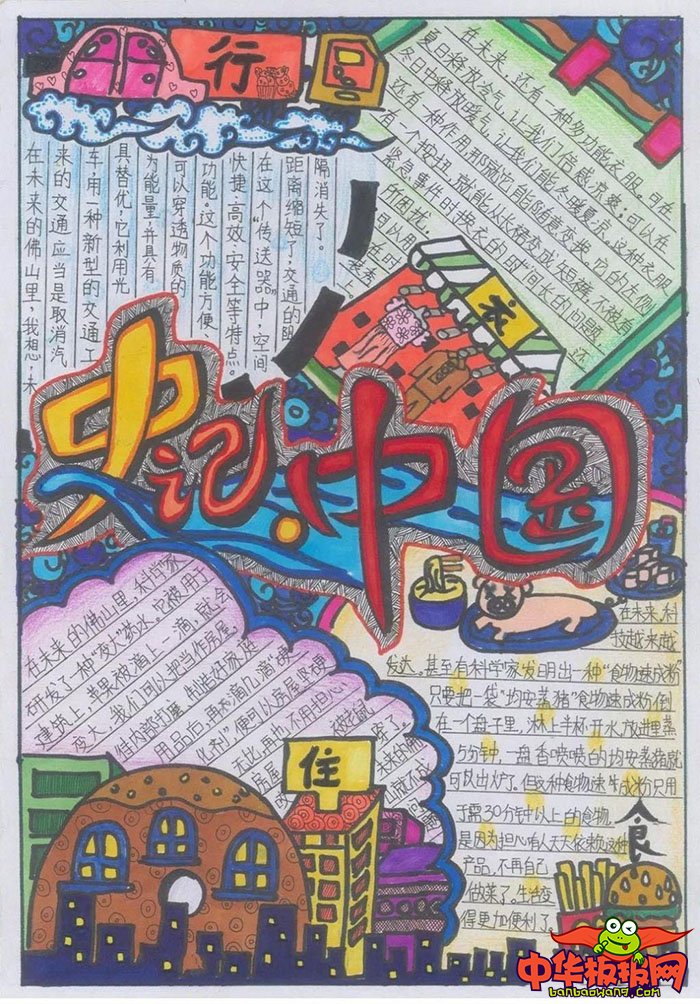 行
在未来的佛山里，我想，未
来的交通应当是取消汽
车，用一种新型的交通工
具替优，它利用光
为能量，并具有
可以穿透物质的
功能。这个功能方便、
快捷、高效、安全等特点。
在这个“传送器”中，空间
距离缩短了，交通的阻
隔消失了。
在未来，还有一种多功能衣服。可在
夏日释放冷气，让我们倍感凉爽；可以在
冬日中释放暖气，让我们能冬暖夏凉。这种衣服
还有一种作用，那就它能随意变换。它的左侧
有一个按扭，就能从长裤变成短裤，
紧急事件时换衣的时间长的问题，还
可以用
的困扰。
衣
史记·中国
在未来的佛山里，科学家
研发了一种“夜大”药水。它被用于
建筑上，苹果被洒上一滴，就会
夜大，我们可以把当作房屋
借内部扩展，制造好家用
用品后，再滴几滴“硬
化剂”便可以房屋坚硬
无比再也不用担心
房屋
住
在未来,科
技越来越
发达，甚至有科学家发明出一种“食物速成粉”
只要把一袋“均安蒸猪”食物速成粉倒
在一个盘子里，淋上半杯开水，放进里蒸
5分钟，一盘香喷喷的均安蒸猪就
可以出炉了。但这种食物速成粉只用
于需30分钟以上的食物，
是因为担心有人天天依赖这种
产品，不再自己
做菜了。生活变
得更加便利了。
食
中华板报网
banbaowang.com